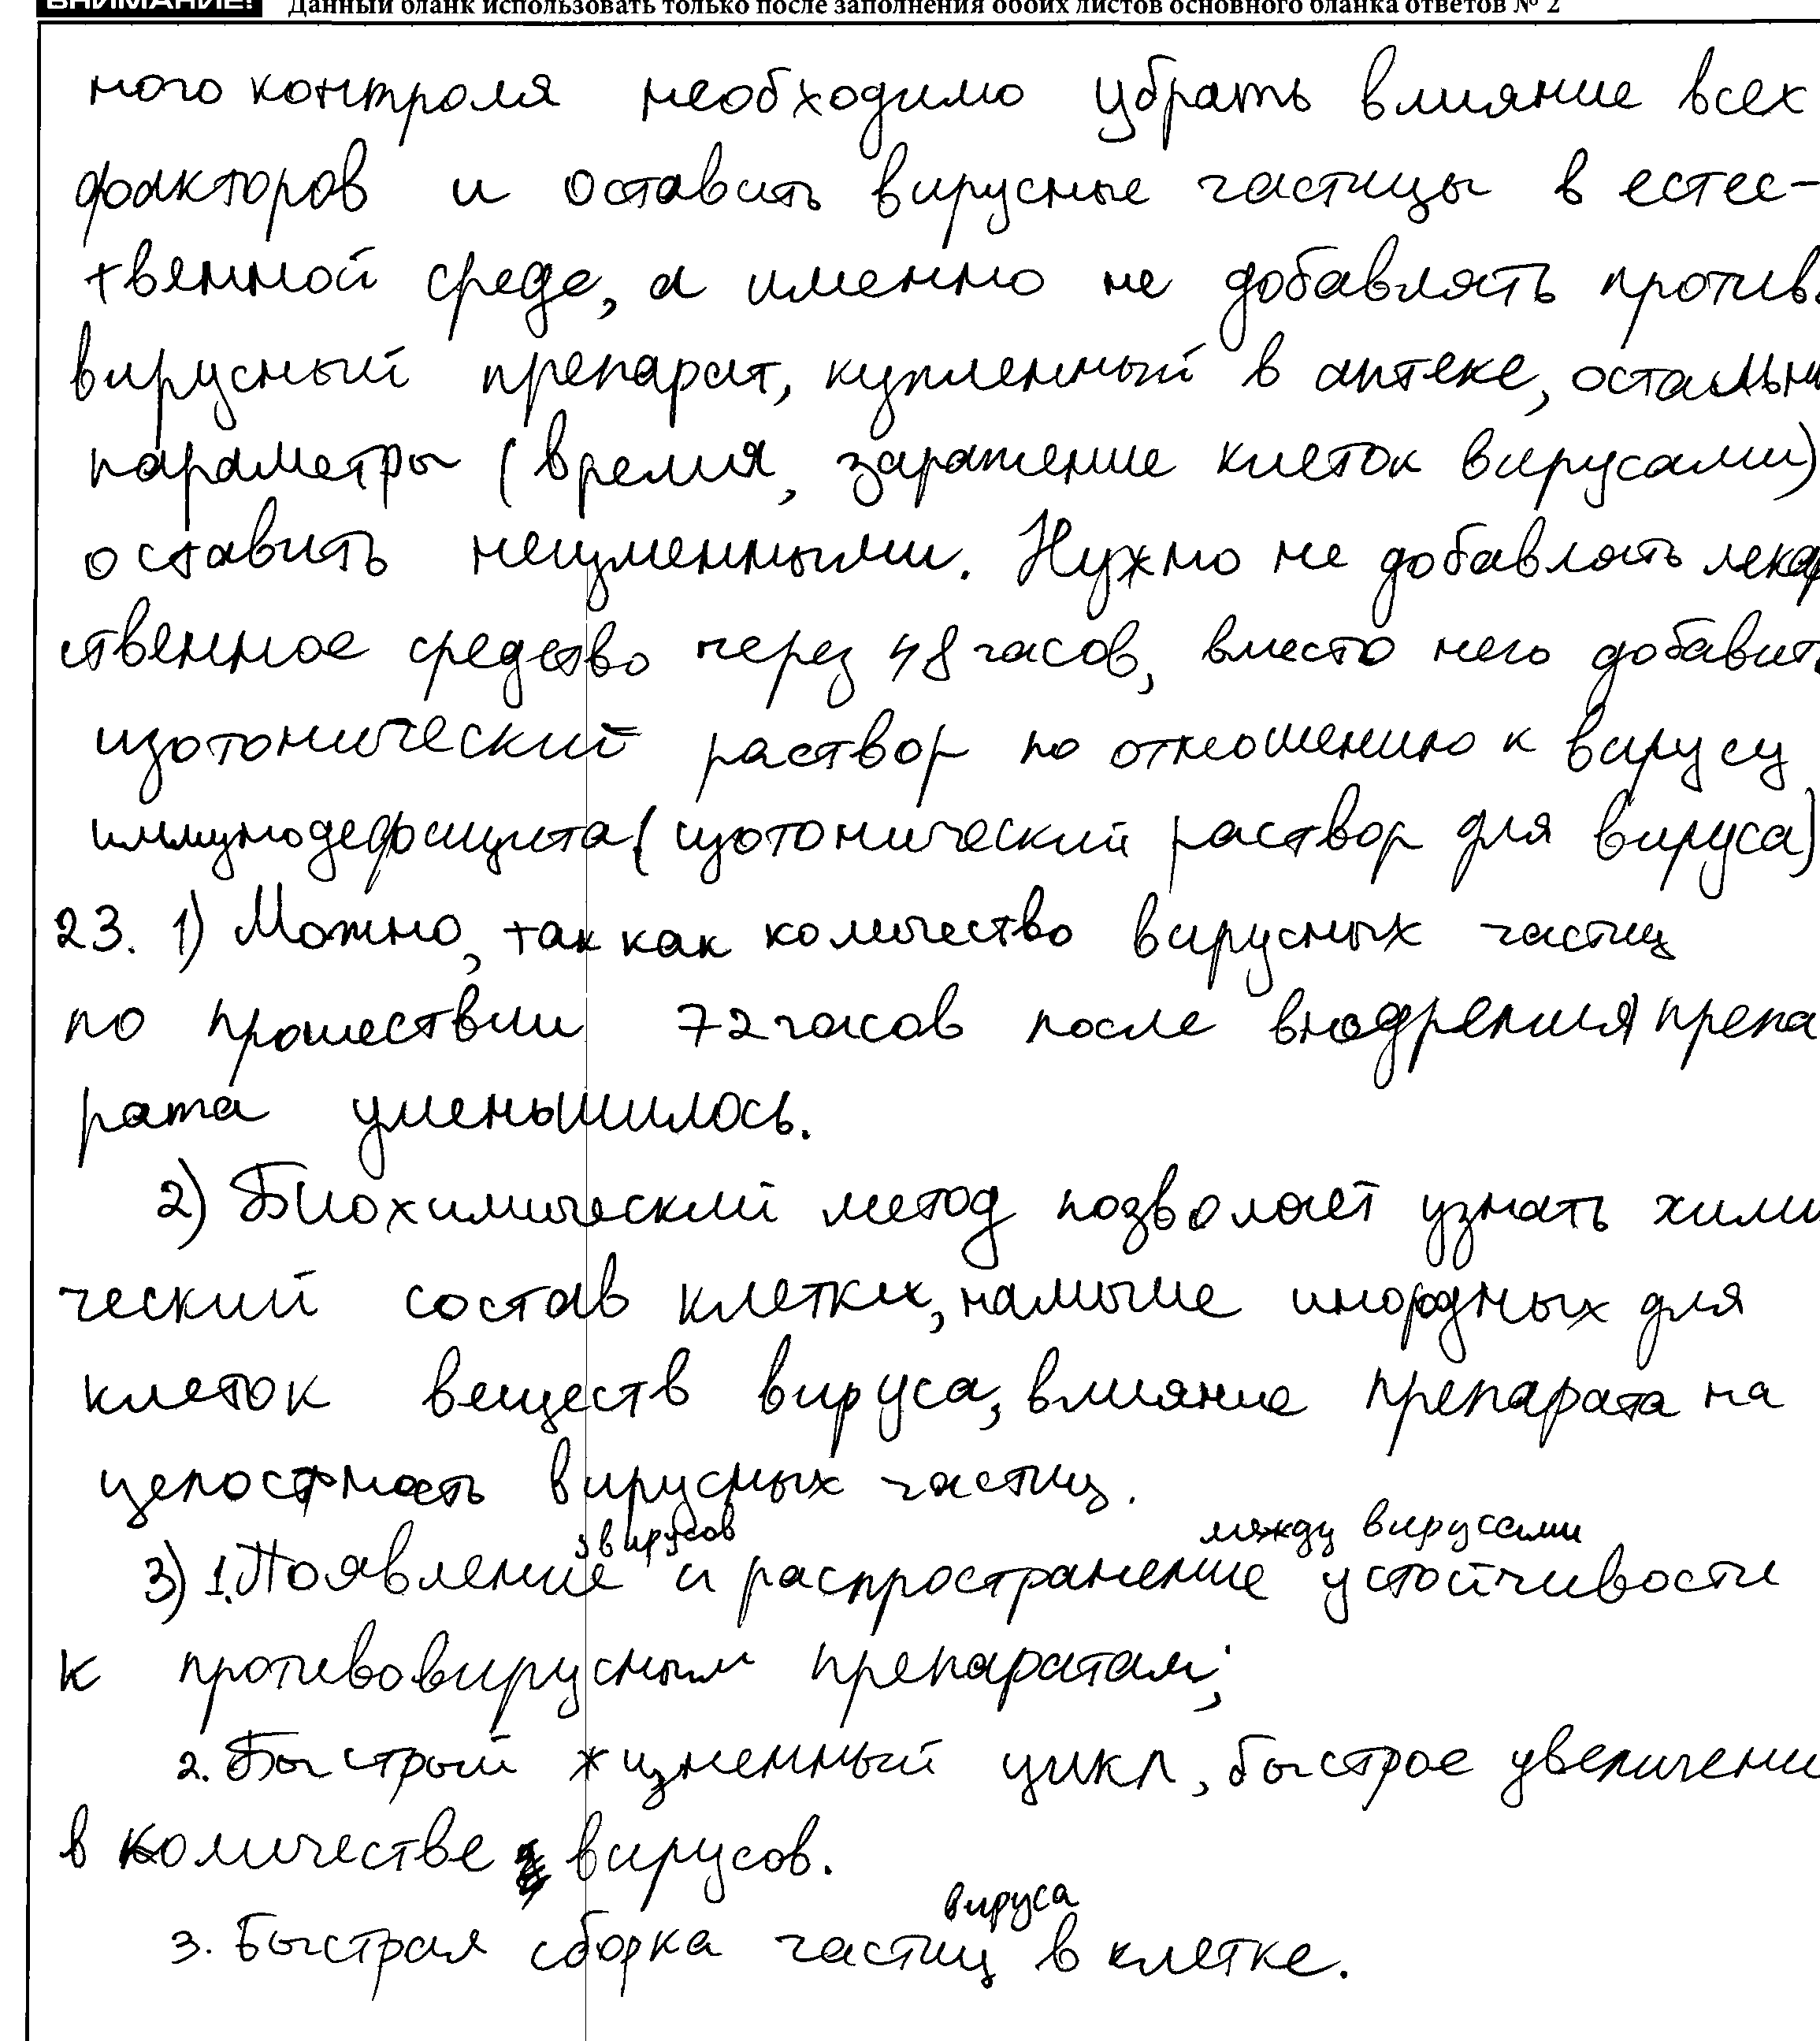 ВНИМАНИЕ! Данный бланк использовать только после заполнения обоих листов основного бланка ответов № 2
ного контроля необходимо убрать влияние всех
факторов и оставить вирусные частицы в естес-
твенной среде, а именно не добавлять противо
вирусный препарат, купленный в аптеке, остальны
параметры (время, заражение клеток вирусами)
оставить неизменными. Нужно не добавлять лекар
ственное средство через 48 часов, вместо него добавить
изотонический раствор по отношению к вирусу
иммунодефицита (изотонический раствор для вируса)
23. 1) Можно, так как количество вирусных частиц
по прошествии 72 часов после внедрения препа
рата уменьшилось.
2) Биохимический метод позволяет узнать хими
ческий состав клетки, наличие инородных для
клеток веществ вируса, влияние препарата на
целостность вирусных частиц.
у вирусов между вирусами
3) 1. Появление и распространение устойчивости
к противовирусным препаратам;
2. Быстрый жизненный цикл, быстрое увеличени
в количестве вирусов.
вируса
3. Быстрая сборка частиц в клетке.